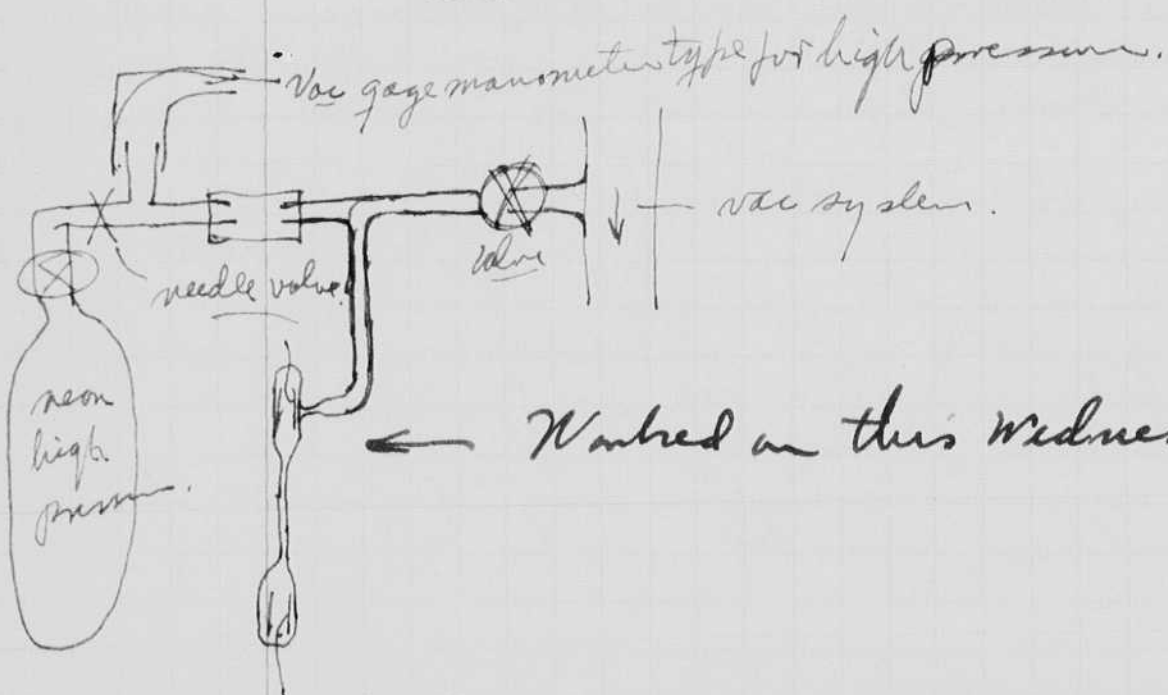 Vac gage manometer type for high pressure.
vac system.
valve
needle valve
neon
high
pressure.
Worked on this Wednes